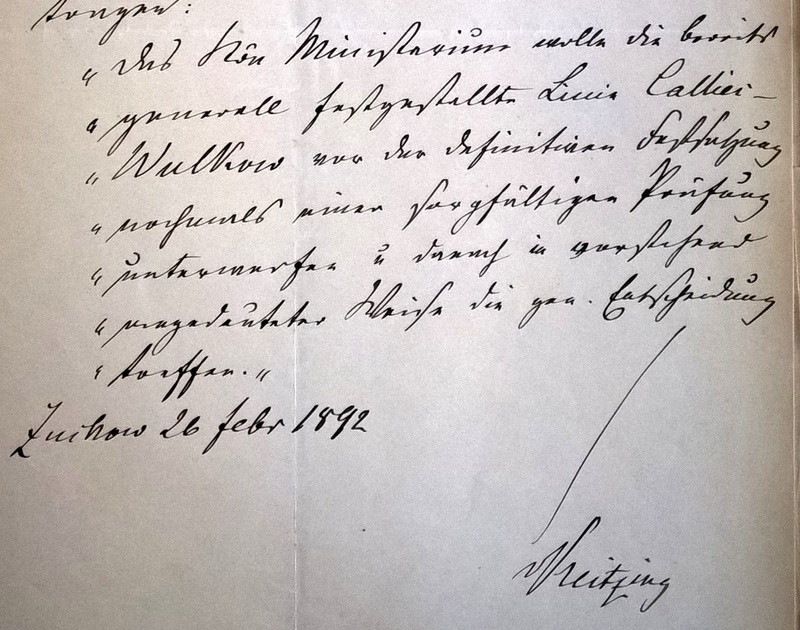 tragen:
„ Das Kön Ministerium wolle die bereits
„ generell festgestellte Linie Callies-
„ Wulkow vor der definitiven Festsetzung
„ nochmals einer sorgfältigen Prüfung
„ unterwerfen u danach in vorstehend
„ angedeuteter Weise die gen. Entscheidung
„ treffen."
26 Febr 1892